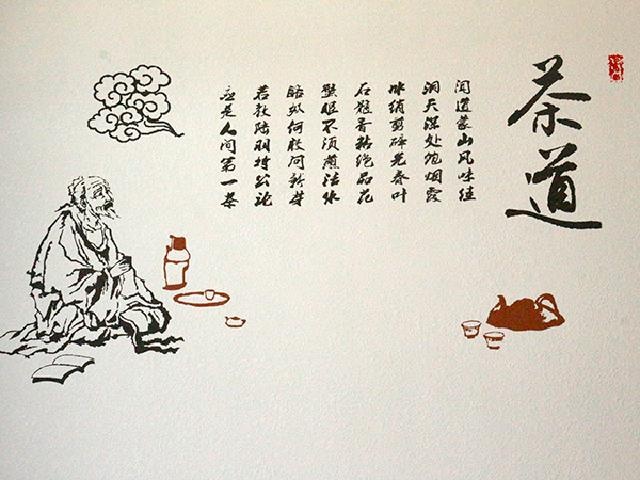 茶道
闻道蒙山风味佳
洞天深处饱烟霞
冰绡剪碎先春叶
石髓香粘绝品花
蟹眼不须煎活水
酪奴何敢问新芽
若教陆羽持公论
应是人间第一茶